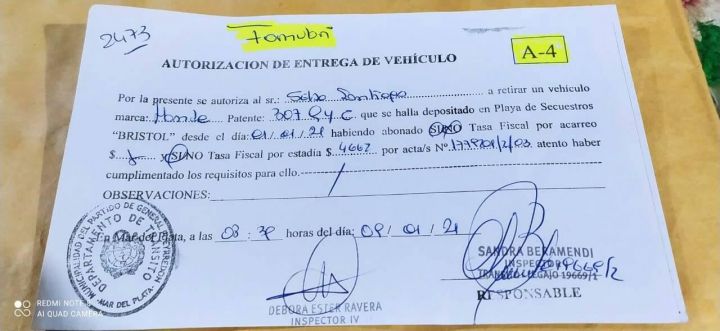 2473
AUTORIZACION DE ENTREGA DE VEHÍCULO
A-4
Por la presente se autoriza al sr.: Santiago a retirar un vehículo
marca: Patente: 307 que se halla depositado en Playa de Secuestros
"BRISTOL" desde el día: 01/01/21 habiendo abonado SI/NO Tasa Fiscal por acarreo
$ SI/NO Tasa Fiscal por estadía $ 4662 por acta/s Nº atento haber
cumplimentado los requisitos para ello.
OBSERVACIONES:
En Mar del Plata, a las 08:30 horas del día: 09/01/21
MUNICIPALIDAD DEL PARTIDO DE GENERAL PUEYRREDON
DEPARTAMENTO DE TRANSITO
MAR DEL PLATA
DEBORA ESTER RAVERA
INSPECTOR IV
SANDRA BERAMENDI
INSPECTOR
LEGAJO 19669/1
RESPONSABLE
REDMI NOTE 8
AI QUAD CAMERA